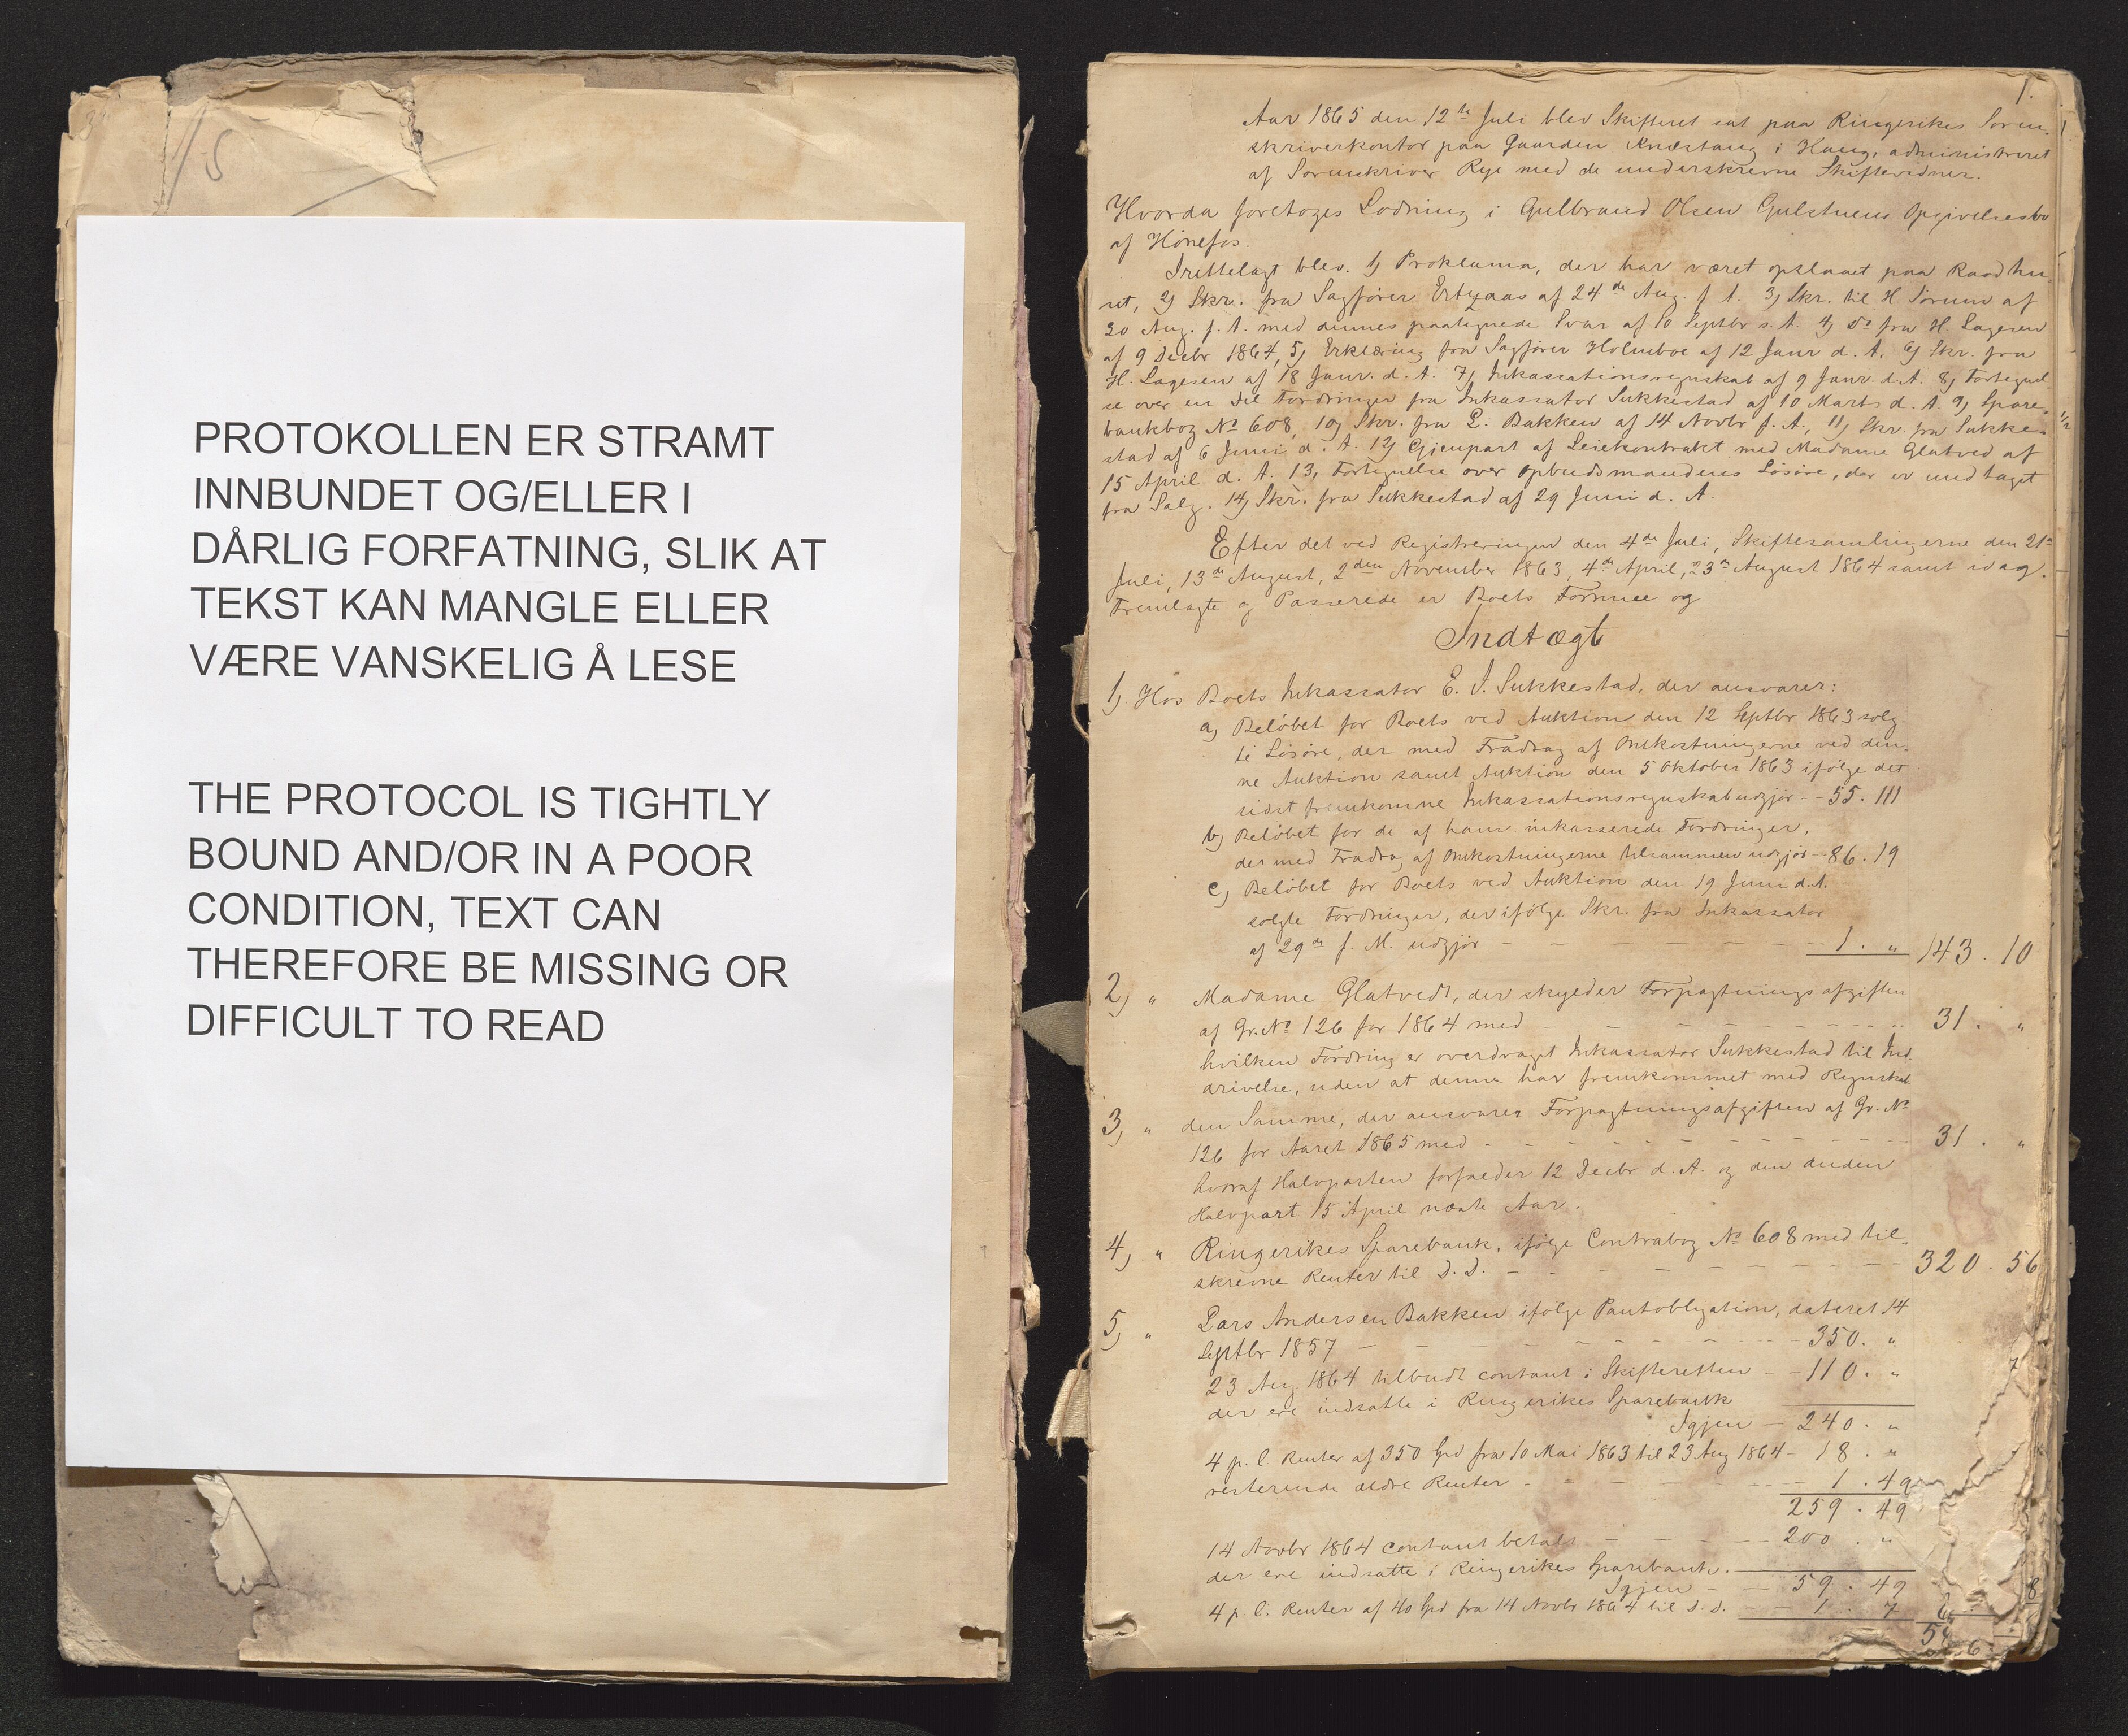 15
PROTOKOLLEN ER STRAMT
INNBUNDET OG/ELLER I
DÅRLIG FORFATNING, SLIK AT
TEKST KAN MANGLE ELLER
VÆRE VANSKELIG Å LESE
THE PROTOCOL IS TIGHTLY
BOUND AND/OR IN A POOR
CONDITION, TEXT CAN
THEREFORE BE MISSING OR
DIFFICULT TO READ
1.
Aar 1865 den 12te Juli blev Skifteret sat paa Ringerikes Soren-
skriverkontor paa Gaarden Knæstang i Haug, administreret
af Sorenskriver Rye med de underskrevne Skiftevidner.
Hvorda foretoges Lodning i Gulbrand Olsen Gulstuens Opgivelsesbo
af Hönefos.
Irettelagt blev. 1) Proklama, der har været opslaaet paa Raadhu-
set, 2) Skr. fra Sagförer af 24de Aug. f. A. 3) Skr. til H. Sörum af
30 Aug. f. A. med dennes paategnede Svar af 10 Septbr s. A. 4) Do fra H. Lagesen
af 9 Decbr 1864, 5) Erklæring fra Sagförer Holmboe af 12 Janr d. A. 6) Skr. fra
H. Lagesen af 18 Janr. d. A. 7) Inkassationsregnskab af 9 Janr. d. A. 8) Fortegnel-
se over en Del Fordringer fra Inkassator Sukkestad af 10 Marts d. A. 9) Spare-
bankbog No 608, 10) Skr. fra L. Bakken af 14 Novbr f. A., 11) Skr. fra Sukke-
stad af 6 Juni d. A. 12) Gjenpart af Leiekontrakt med Madame Glatved af
15 April d. A. 13) Fortegnelse over Opbudsmandens Lösöre, der er undtaget
fra Salg. 14) Skr. fra Sukkestad af 29 Juni d. A.
Efter det ved Registreringen den 4de Juli, Skiftesamlingerne den 21de
Juli, 13de August, 2den November 1863, 4de April, 23de August 1864 samt idag
Fremlagte og Passerede er Boets Formue og
Indtægt
1) Hos Boets Inkassator E. J. Sukkestad, der ansvarer:
a) Belöbet for Boets ved Auktion den 12 Septbr 1863 solg-
te Lösöre, der med Fradrag af Omkostningerne ved den-
ne Auktion samt Auktion den 5 Oktober 1863 ifölge det
sidst fremkomne Inkassationsregnskab udgjör - - 55. 111
b) Belöbet for de af ham inkasserede Fordringer,
der med Fradrag af Omkostningerne tilsammen udgjör - 86. 19
c) Belöbet for Boets ved Auktion den 19 Juni d. A.
solgte Fordringer, der ifölge Skr. fra Inkassator
af 29de f. M. udgjör - - - 1. " 143. 10
2) " Madame Glatvedt, der skylder Forpagtningsafgiften
af Gr. No 126 for 1864 med - - - 31. "
hvilken Fordring er overdraget Inkassator Sukkestad til Ind-
drivelse, uden at denne har fremkommet med Regnskab
3) " den Samme, der ansvarer Forpagtningsafgiften af Gr. No
126 for Aaret 1865 med - - - 31. "
hvoraf Halvparten forfalder 12 Decbr d. A. og den anden
Halvpart 15 April næste Aar.
4) " Ringerikes Sparebank, ifölge Contrabog No 608 med til-
skrevne Renter til D. D. - - - 320. 56
5) " Lars Andersen Bakken ifölge Pantobligation, dateret 14
Septbr 1857 - - - 350. "
23 Aug. 1864 tilbudt contant i Skifteretten - - 110. "
der ere indsatte i Ringerikes Sparebank
Igjen - 240. "
4 p. C. Renter af 350 Spd fra 10 Mai 1863 til 23 Aug 1864 - 18. "
resterende ældre Renter - - - 1. 49
259. 49
14 Novbr 1864 contant betalt - - - 200. "
der ere indsatte i Ringerikes Sparebank.
Igjen - - 59. 49
4 p. C. Renter af 40 Spd fra 14 Novbr 1864 til D. D. - - 1. 7